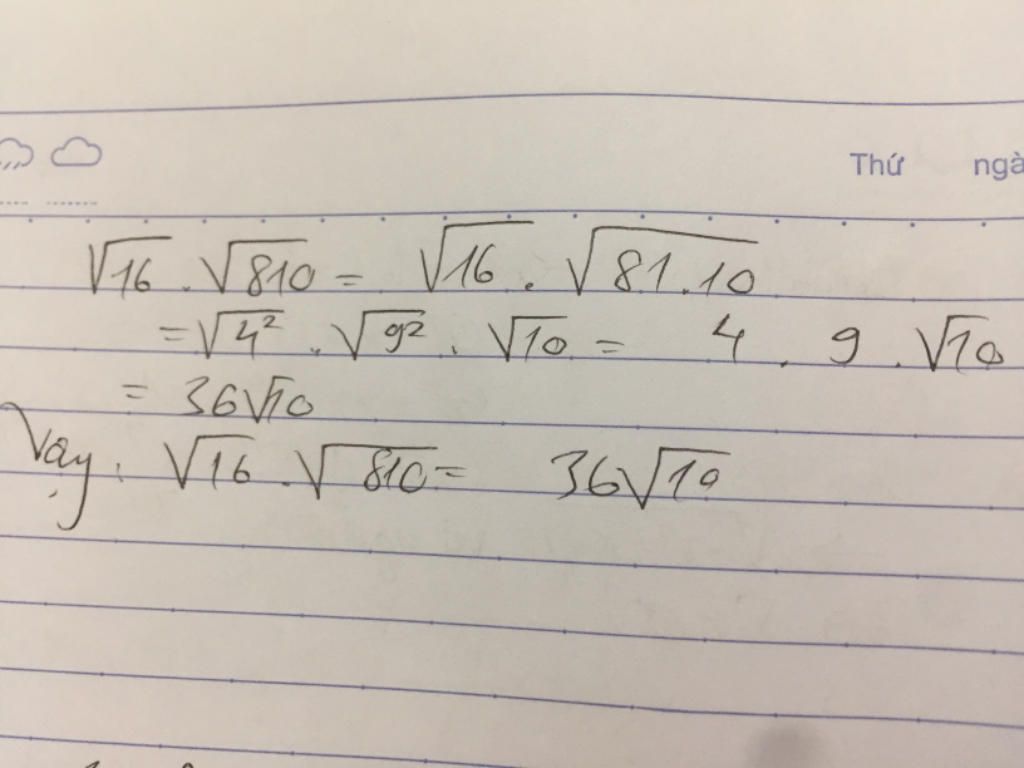 Thứ ngà
√16 . √810 = √16 . √81.10
= √4² . √9² . √10 = 4 . 9 . √10
= 36√10
Vậy: √16 . √810 = 36√10